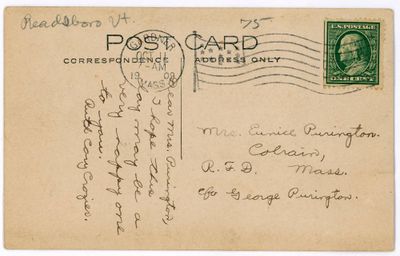 Readsboro Vt.
75
POST CARD
CORRESPONDENCE
ADDRESS ONLY
GARDNER
OCT 11
7-AM
19 09
MASS.
U.S. POSTAGE
ONE CENT
Dear Mrs. Purington,
I hope this
day may be a
very happy one
to you.
Ruth Cary Crozier.
Mrs. Eunice Purington.
Colrain,
R.F.D. Mass.
c/o George Purington.